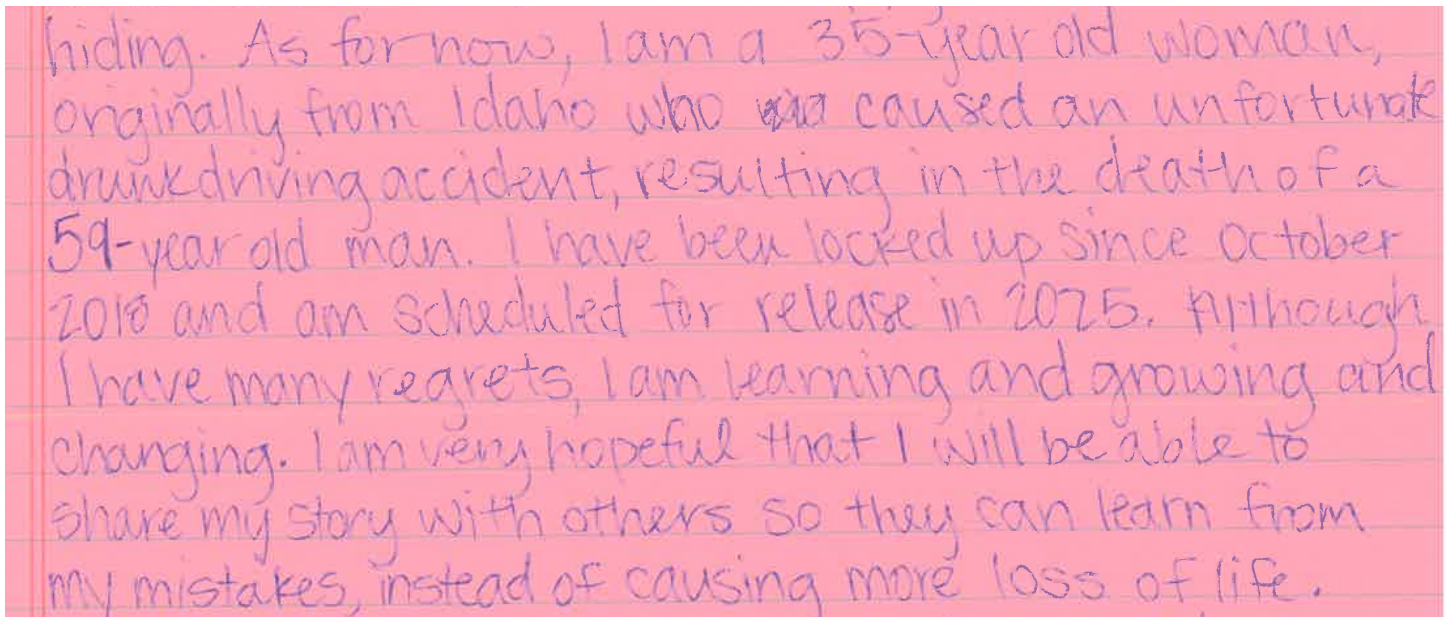 hiding. As for now, I am a 35-year old woman,
originally from Idaho who caused an unfortunate
drunk driving accident, resulting in the death of a
59-year old man. I have been locked up since October
2018 and am scheduled for release in 2025. Although
I have many regrets, I am learning and growing and
changing. I am very hopeful that I will be able to
share my story with others so they can learn from
my mistakes, instead of causing more loss of life.